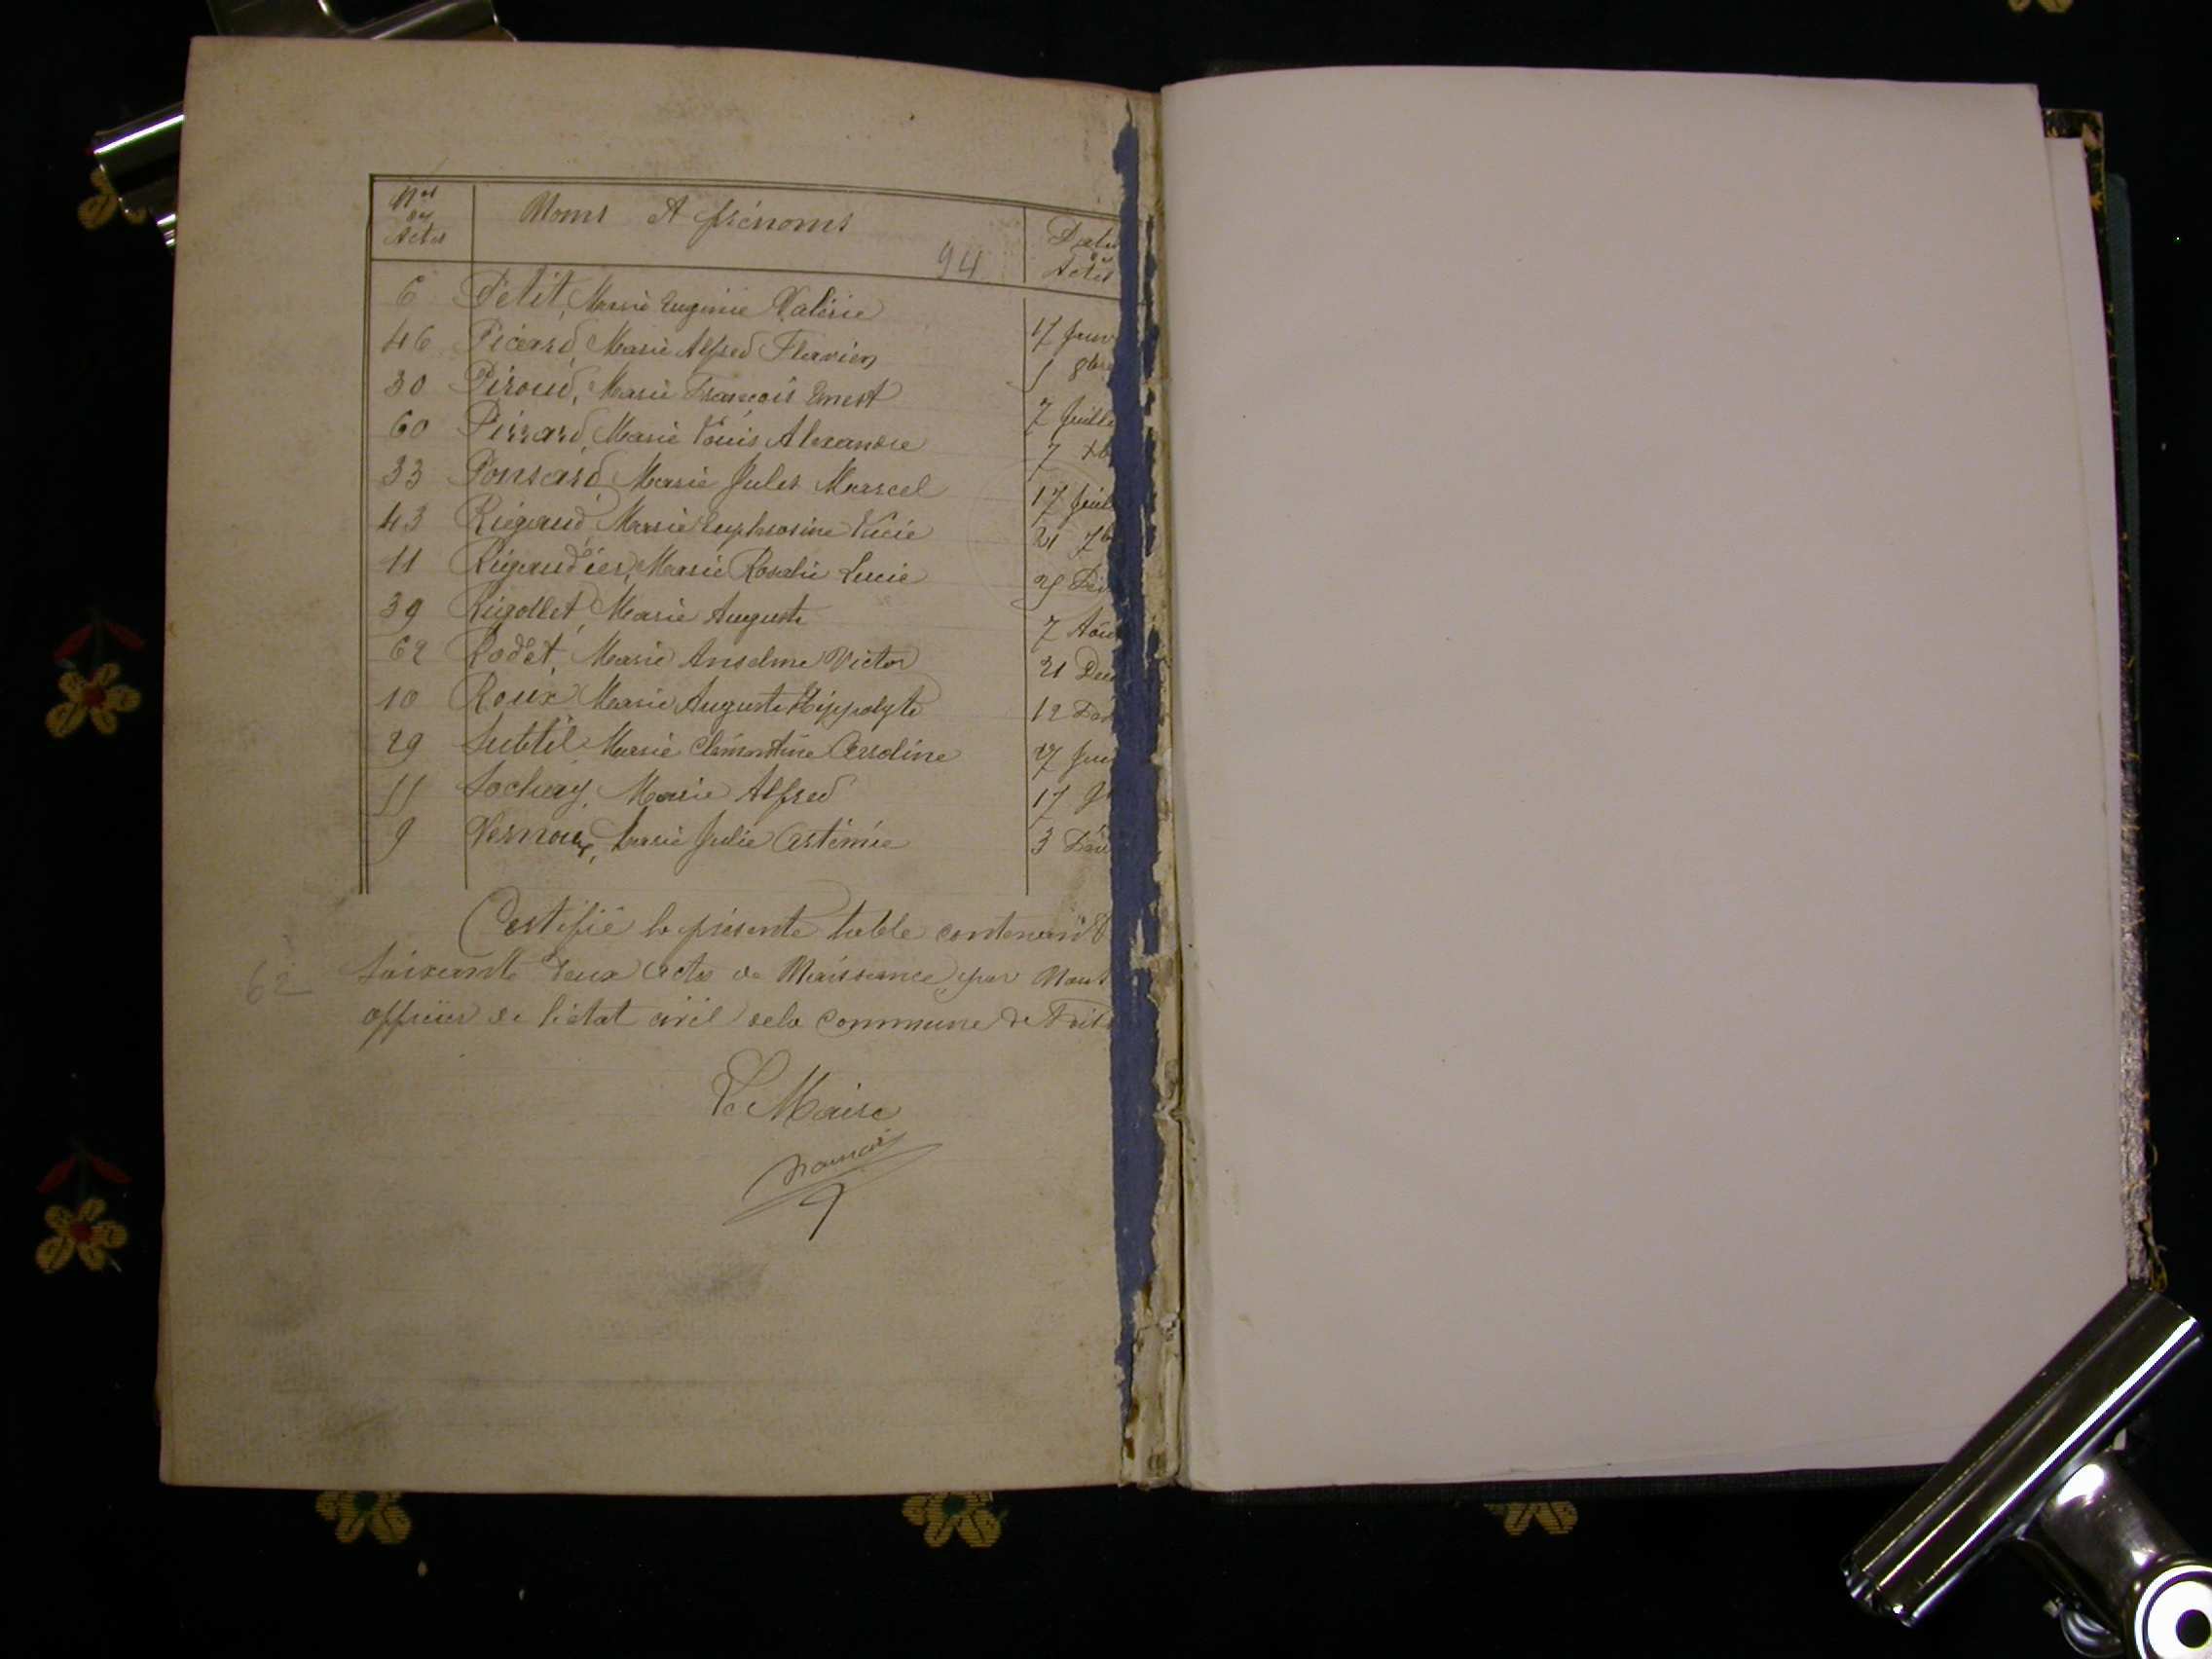 Nos des Actes Noms et prénoms Dates des Actes
94
6 Petit, Marie Eugénie Valérie 17 Janv
46 Picard, Marie Alfred Flavien 5 8bre
30 Piroud, Marie François Ernest 7 Juille
60 Pirrard, Marie Louis Alexandre 7 Xb
33 Ponsard, Marie Jules Marcel 17 Juil
43 Rigaud, Marie Euphrosine Lucie 21 7b
11 Rigaudier, Marie Rosalie Lucie 25 Fév
39 Rigollet, Marie Auguste 7 Aou
62 Rodet, Marie Anselme Victor 21 Déc
10 Roux Marie Auguste Hippolyte 12 Fév
29 Subtil Marie Clémentine Caroline 27 Jui
55 Sochay, Marie Alfred 17 9
9 Vernoux, Marie Julie Artémie 3 Fév
Certifié la présente table contenant
62 Soixante deux acte de Naissance, par Nous
officier de l'état civil de la Commune de
Le Maire